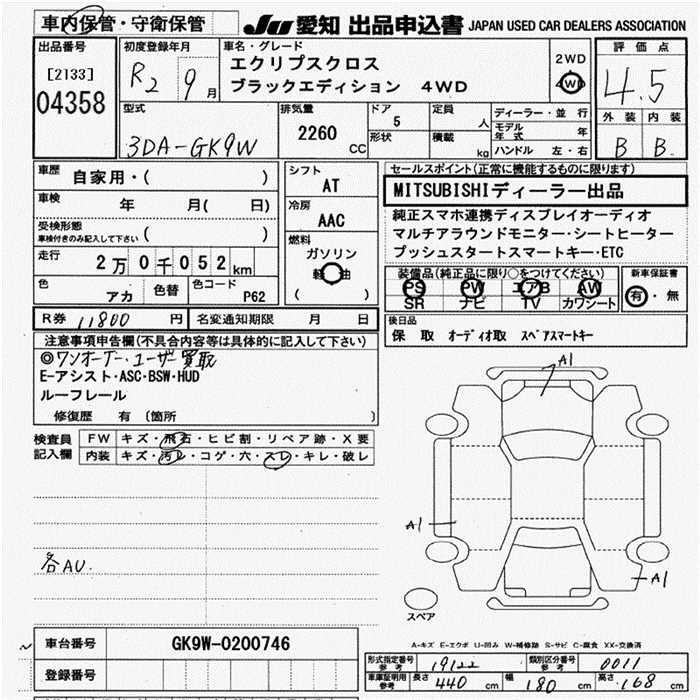 車内保管・守衛保管
JU 愛知 出品申込書 JAPAN USED CAR DEALERS ASSOCIATION
出品番号
[2133]
04358
初度登録年月
R2 9月
車名・グレード
エクリプスクロス
ブラックエディション 4WD
2WD
4WD
評価点
4.5
外装 内装
B B
型式
3DA-GK9W
排気量
2260 CC
ドア
5
形状
定員
人
積載
kg
ディーラー・並行
モデル年式 年
ハンドル 左・右
車歴
自家用・( )
車検
年 月( 日)
受検形態
車検付きのみ記入して下さい ( )
走行
2万0千052km
色
アカ
色替
色コード
P62
シフト
AT
冷房
AAC
燃料
ガソリン
軽油
( )
セールスポイント(正常に機能するものに限ります)
MITSUBISHIディーラー出品
純正スマホ連携ディスプレイオーディオ
マルチアラウンドモニター・シートヒーター
プッシュスタートスマートキー・ETC
装備品(純正品に限り○をつけてください)
PS PW エアB AW
SR ナビ TV カワシート
新車保証書
有・無
R券 11800 円
名変通知期限 月 日
後日品
保 取 オーディオ取 スペアスマートキー
注意事項申告欄(不具合内容等は具体的に記入して下さい)
◎ワンオーナー・ユーザー買取
E-アシスト・ASC・BSW・HUD
ルーフレール
修復歴 有 〔箇所 〕
検査員記入欄
FW キズ・飛石・ヒビ割・リペア跡・X要
内装 キズ・汚レ・コゲ・穴・スレ・キレ・破レ
各AU.
A1
A1
A1
スペア
A-キズ E-エクボ U-凹み W-補修跡 S-サビ C-腐食 XX-交換済
車台番号 GK9W-0200746
登録番号
形式指定番号参考 19122 類別区分番号参考 0011
車庫証明用参考 長さ 440 cm 幅 180 cm 高さ 168 cm